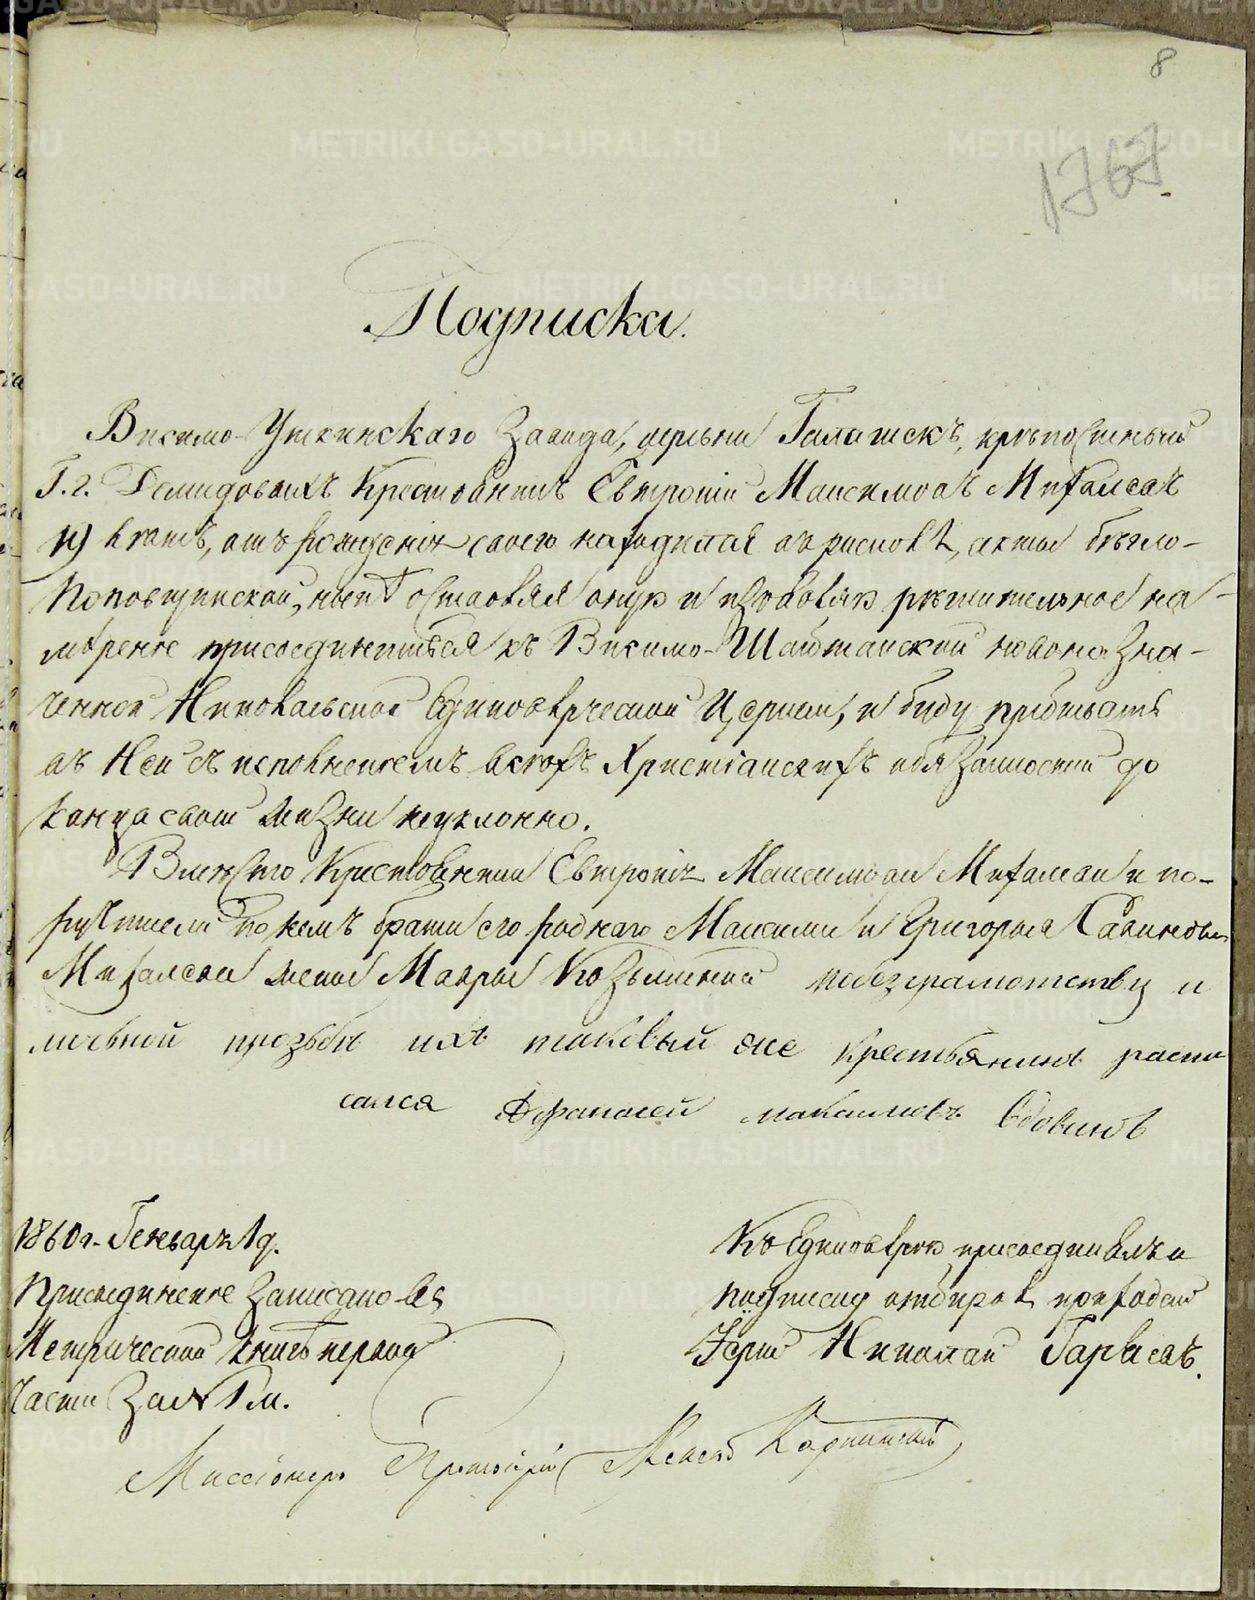 8
1767
Подписка.
Висимо-Уткинскаго Завода, деревни Галашекъ, крѣпостный
Г.г. Демидовыхъ Крестьянинъ Евтропій Максимовъ Михалевъ
лѣтъ, отъ рожденія своего находился въ расколѣ, секты бѣгло-
поповщинской, нынѣ оставляя оную и изъявляю рѣшительное на-
мѣреніе присоединиться къ Висимо-Шайтанской новоназна-
ченной Никольской Единовѣрческой Церкви, и буду пребывать
въ Ней съ исполненіемъ всехъ Христіанскихъ обязанностей до
конца своей жизни неуклонно.
Вместо Крестьянина Евтропія Максимова Михалева и по-
ручителей по немъ брата его роднаго Максима и Григорья Савиновы
Михалева жены Мавры Козьминой по безграмотству и
личьной прозьбе ихъ таковый же крестьянинъ распи
салса Афанасей макаловъ Вдовинъ
1860 г. Генваря 1 д.
Присоединеніе Записано въ
Метрической книге первой
части За № 1 м.
Къ Единоверію присоединилъ и
подписку отбиралъ приходской
Іерей Николай Гаряевъ.
Миссіонеръ Протоіерей Алексей Карпинскій